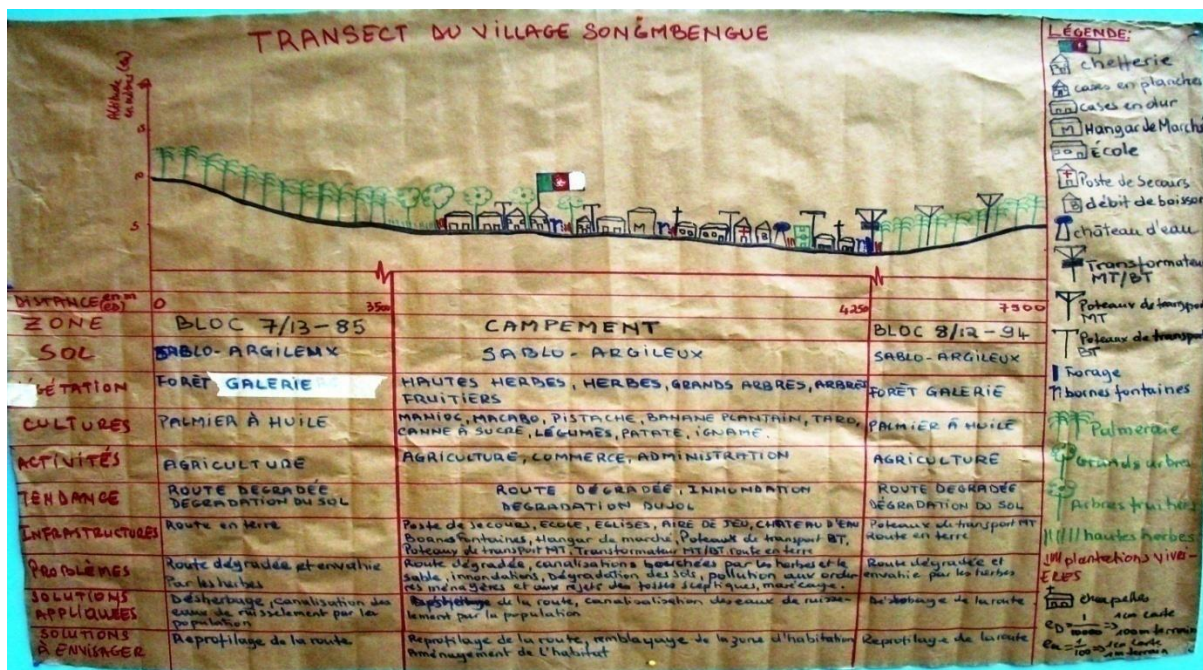 TRANSECT DU VILLAGE SONÉMBENGUE
Altitude (ea)
en mètres
5
DISTANCE (en m
(eD)
0
3500
4250
7900
ZONE
BLOC 7/13-85
CAMPEMENT
BLOC 8/12-94
SOL
SABLO-ARGILEMX
SABLO-ARGILEUX
SABLO-ARGILEUX
GÉTATION
FORÊT GALERIE
HAUTES HERBES, HERBES, GRANDS ARBRES, ARBRES
FRUITIERS
FORÊT GALERIE
CULTURES
PALMIER À HUILE
MANIOC, MACABO, PISTACHE, BANANE PLANTAIN, TARO,
CANNE À SUCRE, LÉGUMES, PATATE, IGNAME.
PALMIER À HUILE
ACTIVITÉS
AGRICULTURE
AGRICULTURE, COMMERCE, ADMINISTRATION
AGRICULTURE
TENDANCE
ROUTE DEGRADÉE
DEGRADATION DU SOL
ROUTE DÉGRADÉE, INNUNDATION
DEGRADATION DU SOL
ROUTE DEGRADÉE
DÉGRADATION DU SOL
INFRASTRUCTURES
Route en terre
Poste de secours, ECOLE, EGLISES, AIRE DE JEU, CHÂTEAU D'EAU
Bornes Fontaines, Hangar de marché, Poteaux de transport BT,
Poteaux de transport MT, Transformateur MT/BT, route en terre
Poteaux de transport MT
Route en terre
PROBLÈMES
Route dégradée et envahie
Par les herbes
Route dégradée, canalisations bouchées par les herbes et le
sable, innondations, Dégradation des sols, pollution aux ordu-
res ménagères et aux rejets des fosses sceptiques, marécage
Route dégradée et
envahie par les herbes
SOLUTIONS
APPLIQUÉES
Désherbage, canalisation des
eaux de ruissellement par les
population
de la route, canalisation des eaux de ruisse-
lement par la population
de la route
SOLUTIONS
À ENVISAGER
Reprofilage de la route
Reprofilage de la route, remblayage de la zone d'habitation
Aménagement de l'habitat
Reprofilage de la route
LÉGENDE:
chefferie
cases en planches
cases en dur
M
Hangar de Marché
École
Poste de Secours
B
débit de boisson
château d'eau
Transformateur
MT/BT
Poteaux de transport
MT
Poteaux de transport
BT
Forage
bornes fontaines
Palmeraie
Grands arbres
Arbres fruitiers
hautes herbes
plantations vivri-
ÈRES
chapelles
eD = 1/10000 => 1cm carte
100m terrain
ea = 1/100 => 1cm carte
1m terrain
M
B